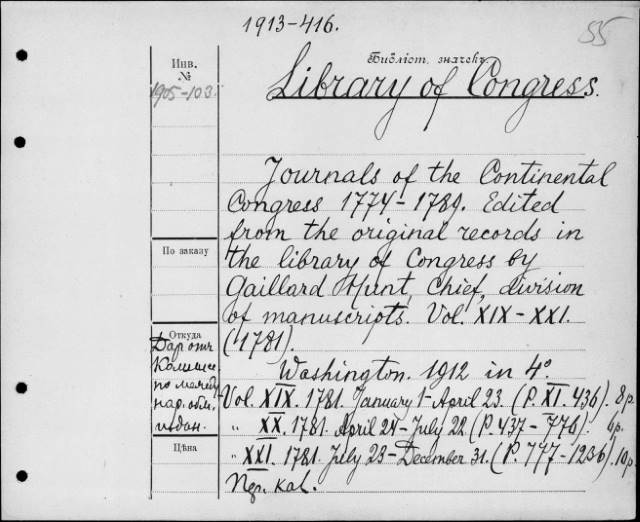 1913-416.
55
Библіот. значекъ.
Инв.
№
1905-103.
Library of Congress.
Journals of the Continental
Congress 1774-1789. Edited
from the original records in
the library of Congress by
Gaillard Hunt, Chief, division
of manuscripts. Vol. XIX-XXI.
(1781).
Washington. 1912 in 4°.
Vol. XIX. 1781. January 1-April 23. (P. XI. 436). 8р.
" XX. 1781. April 24-July 22 (P. 437-776). 6р.
" XXI. 1781. July 23-December 31. (P. 777-1236). 10р.
По заказу
Откуда
Даръ отъ
Комисс.
по между
нар. обм.
издан.
Цѣна